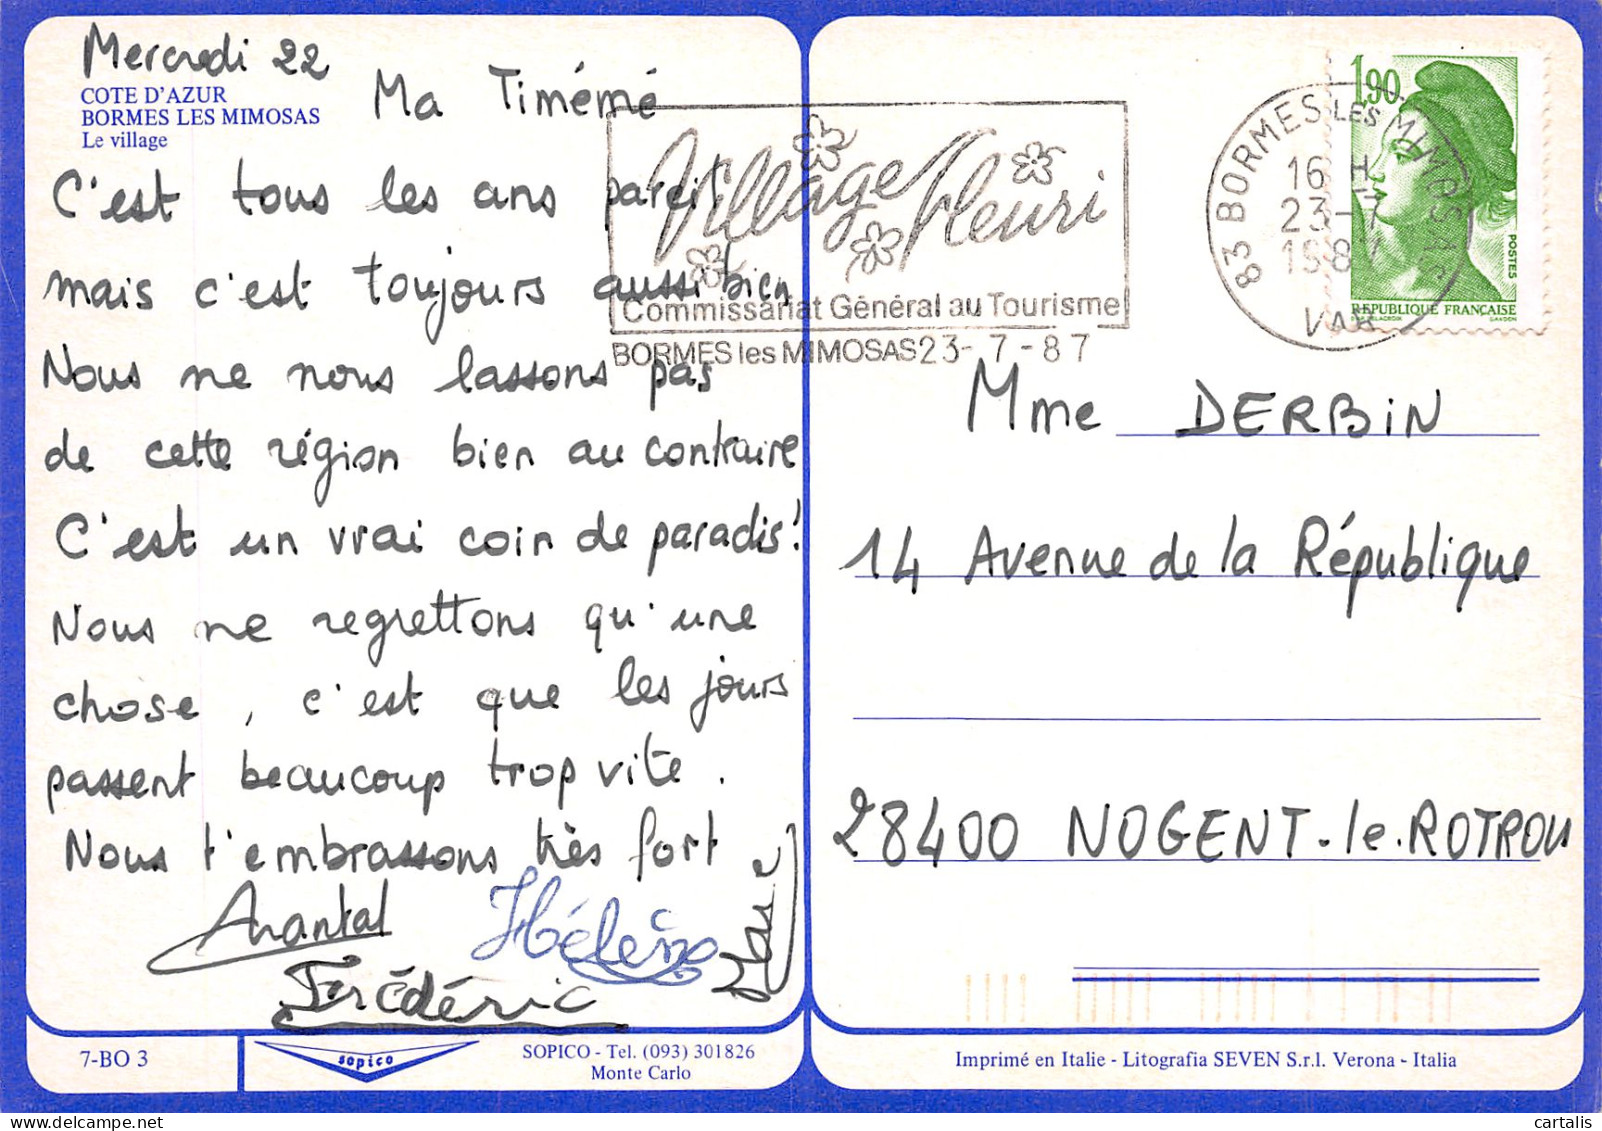 Mercredi 22
COTE D'AZUR
BORMES LES MIMOSAS
Le village
Ma Timémé
C'est tous les ans pareil
mais c'est toujours aussi bien
Nous ne nous lassons pas
de cette région bien au contraire
C'est un vrai coin de paradis!
Nous ne regrettons qu'une
chose, c'est que les jours
passent beaucoup trop vite.
Nous t'embrassons très fort
Chantal
Hélène
Marie
Frédéric
7-BO 3
sopico
SOPICO - Tel. (093) 301826
Monte Carlo
Village fleuri
Commissariat Général au Tourisme
BORMES les MIMOSAS 23-7-87
83 BORMES LES MIMOSAS
16 H
23-7
1987
VAR
1,90
POSTES
REPUBLIQUE FRANÇAISE
GANDON
Mme DERBiN
14 Avenue de la République
28400 NOGENT-le-ROTROU
Imprimé en Italie - Litografia SEVEN S.r.l. Verona - Italia